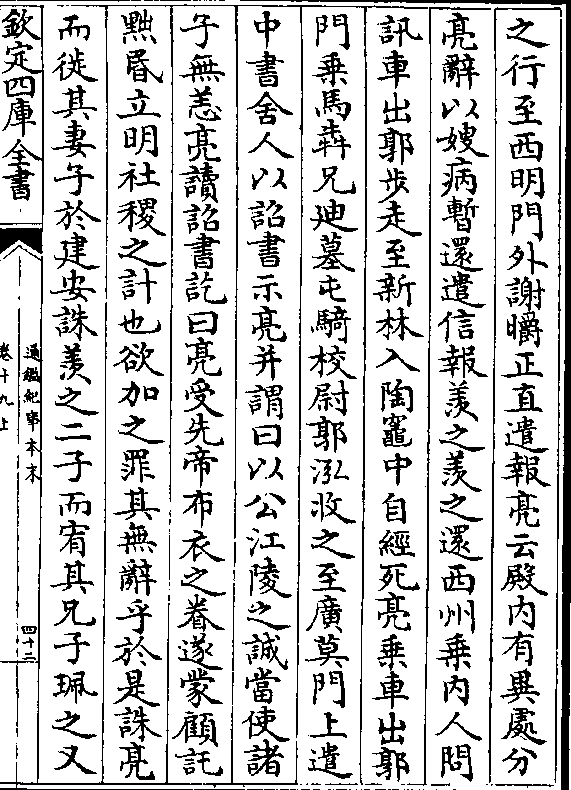 之行至西明門外謝㬭正直遣報亮云殿内有異處分
亮辭以嫂病暫還遣信報羨之羨之還西州乗内人問
訊車出郭步走至新林入陶竈中自經死亮乗車出郭
門乗馬犇兄迪墓屯騎校尉郭泓收之至廣莫門上遣
中書舍人以詔書示亮并謂曰以公江陵之誠當使諸
子無恙亮讀詔書訖曰亮受先帝布衣之眷遂蒙顧託
黜昬立明社稷之計也欲加之罪其無辭乎於是誅亮
而徙其妻子於建安誅羨之二子而宥其兄子珮之又
欽定四庫全書
通鑑紀事本末
卷十九上
四十二